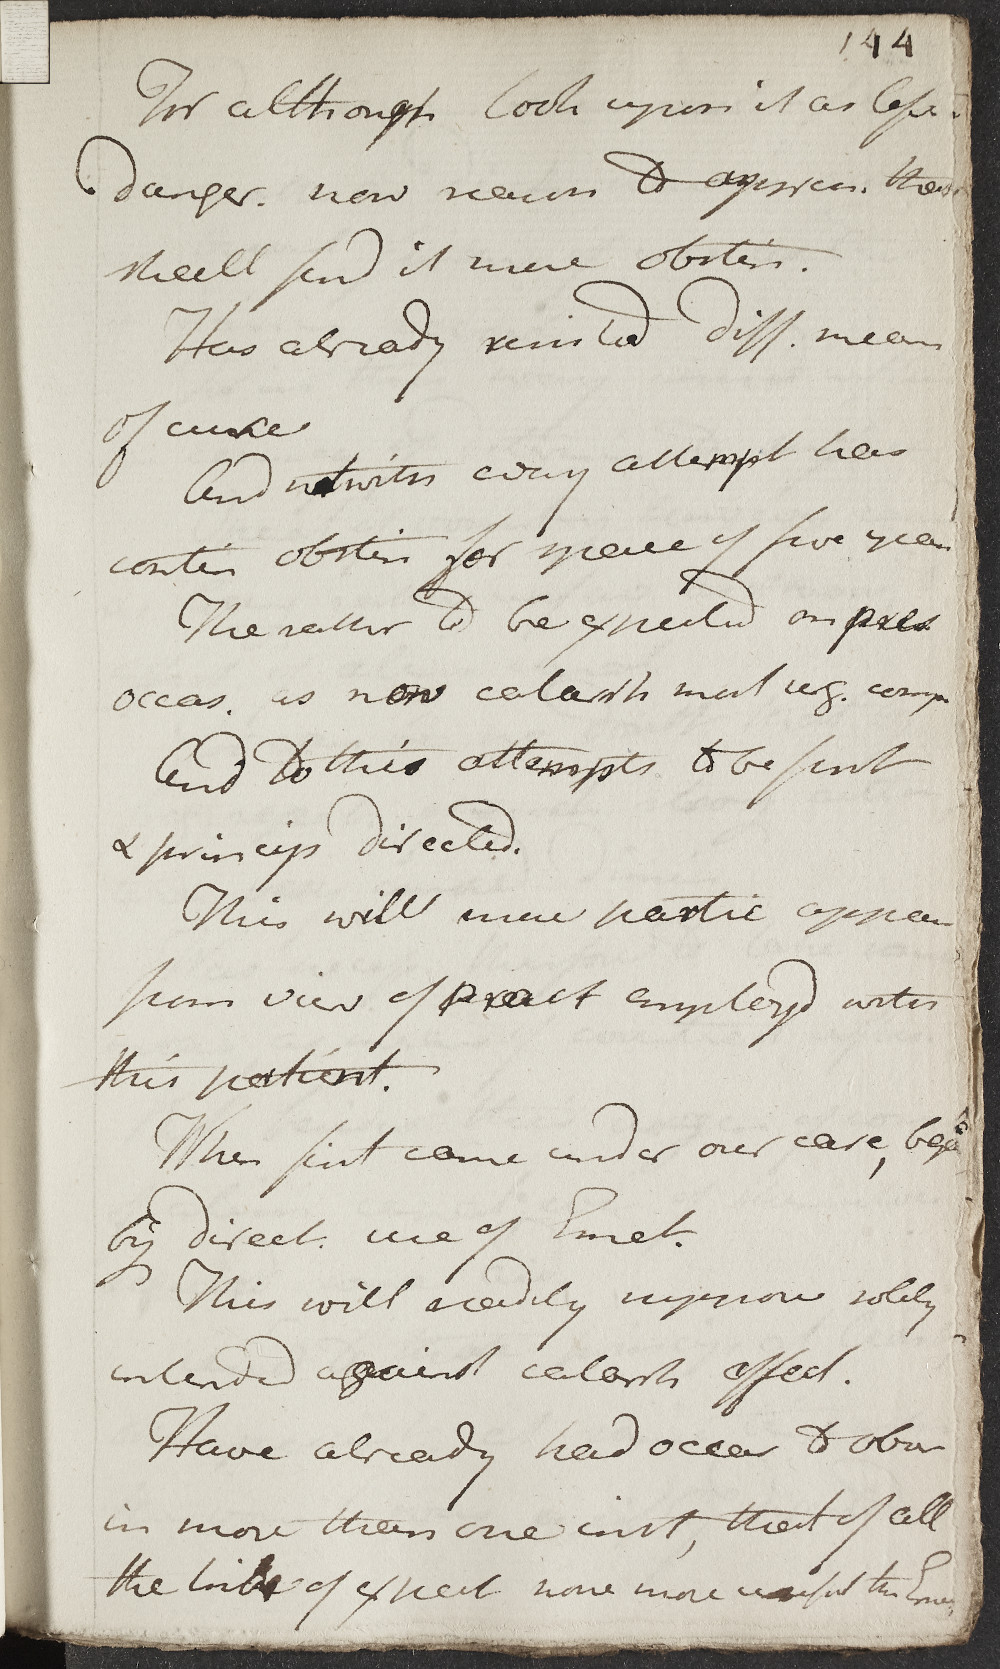 144
For although look upon it as less
danger. now reason to appreh. that
shall find it more obstin.
Has already resisted diff. mean
of cure
And notwith every attempt has
contin obstin for space of five year
The rather to be expected on pres
occas. as now catarrh most urg. comp
And to this attempts to be first
& princip directed.
This will more partic appear
from view of pract employd with
this patient.
When first came under our care, began
by direct. use of Emet.
This will readily suppose solely
intended against catarrh affect.
Have already had occas to obser
in more than one inst, that of all
the tribe of expect none more useful than Emet,